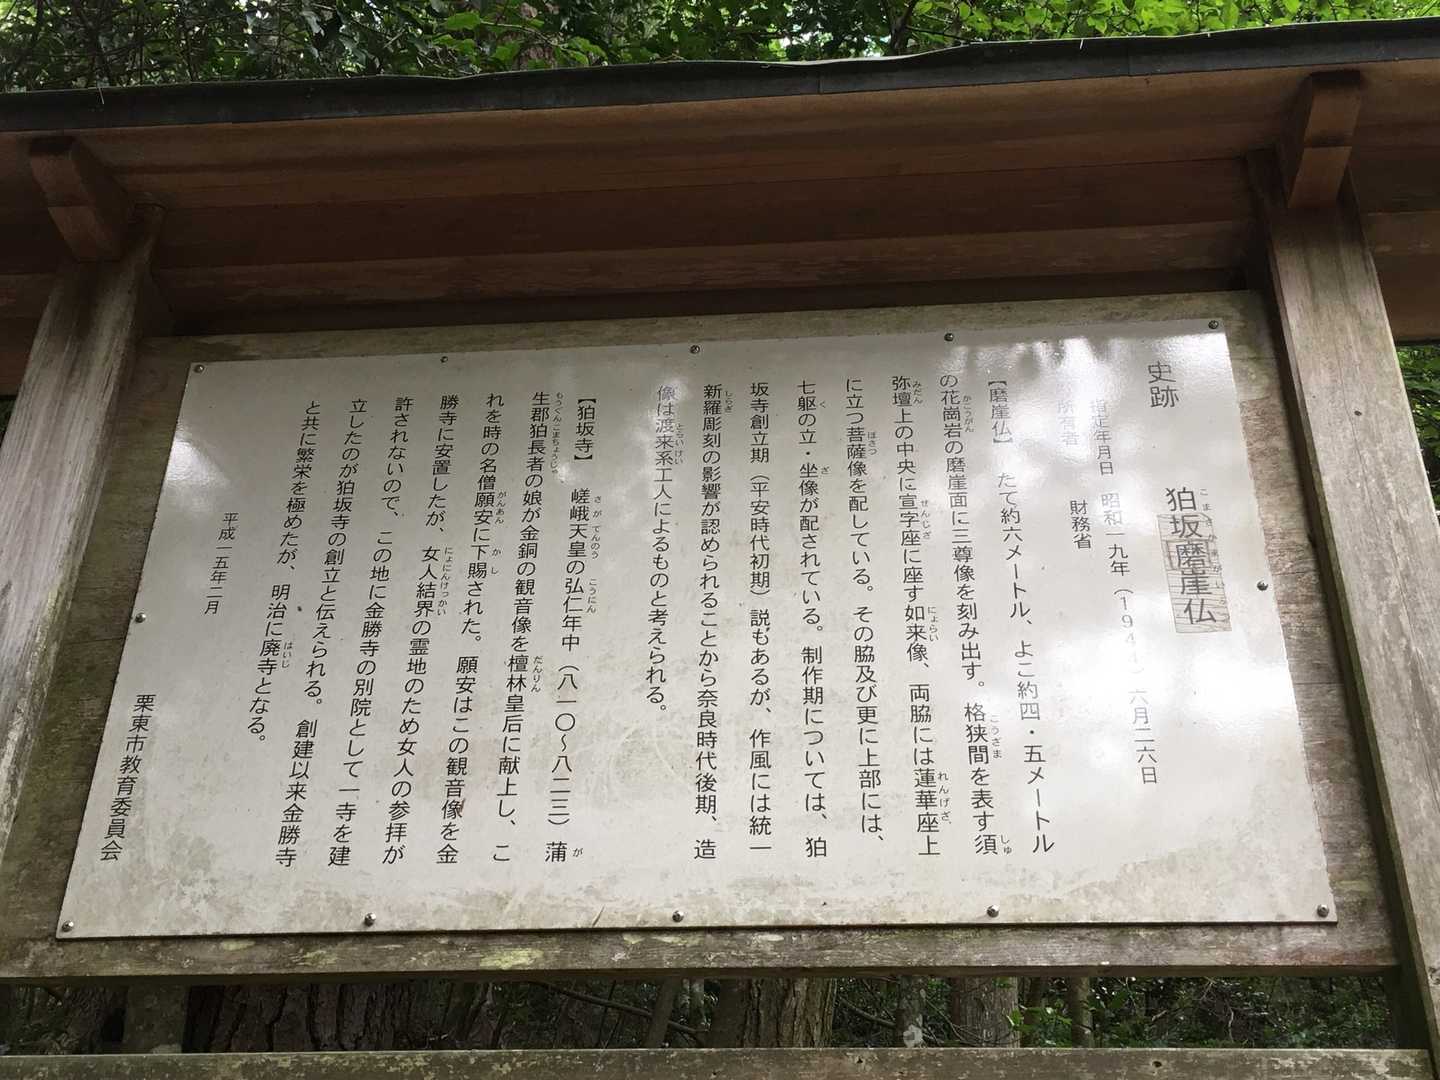 史跡　狛坂磨崖仏
指定年月日　昭和一九年（194４）六月二六日
所有者　財務省
【磨崖仏】　たて約六メートル、よこ約四・五メートル
の花崗岩の磨崖面に三尊像を刻み出す。格狭間を表す須
弥壇上の中央に宣字座に座す如来像、両脇には蓮華座上
に立つ菩薩像を配している。その脇及び更に上部には、
七躯の立・坐像が配されている。制作期については、狛
坂寺創立期（平安時代初期）説もあるが、作風には統一
新羅彫刻の影響が認められることから奈良時代後期、造
像は渡来系工人によるものと考えられる。
【狛坂寺】　嵯峨天皇の弘仁年中（八一〇～八二三）蒲
生郡狛長者の娘が金銅の観音像を檀林皇后に献上し、こ
れを時の名僧願安に下賜された。願安はこの観音像を金
勝寺に安置したが、女人結界の霊地のため女人の参拝が
許されないので、この地に金勝寺の別院として一寺を建
立したのが狛坂寺の創立と伝えられる。創建以来金勝寺
と共に繁栄を極めたが、明治に廃寺となる。
平成一五年二月
栗東市教育委員会